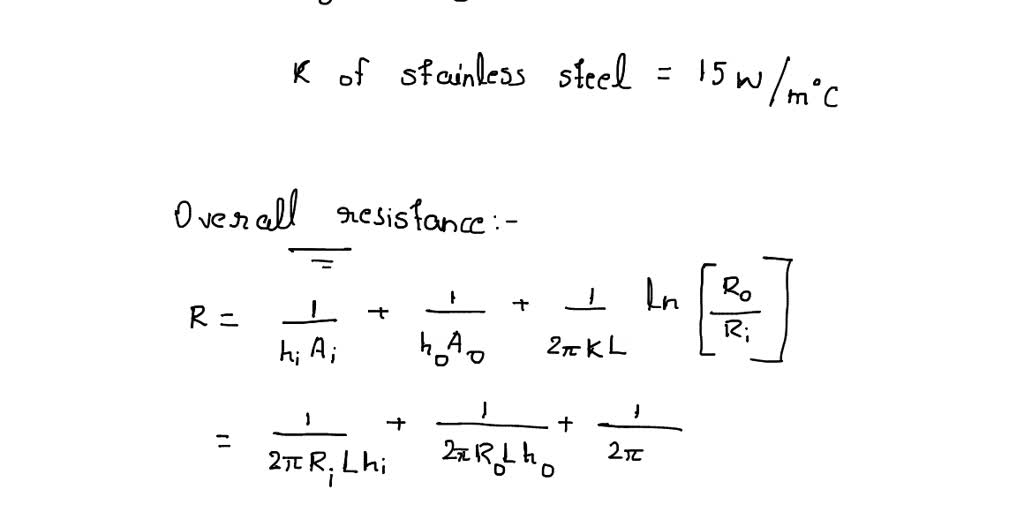 K of stainless steel = 15 W/m°C
Overall resistance:-
R = 1/(hᵢ Aᵢ) + 1/(h₀ A₀) + 1/(2π K L) ln [R₀/Rᵢ]
= 1/(2π Rᵢ L hᵢ) + 1/(2π R₀ L h₀) + 1/(2π